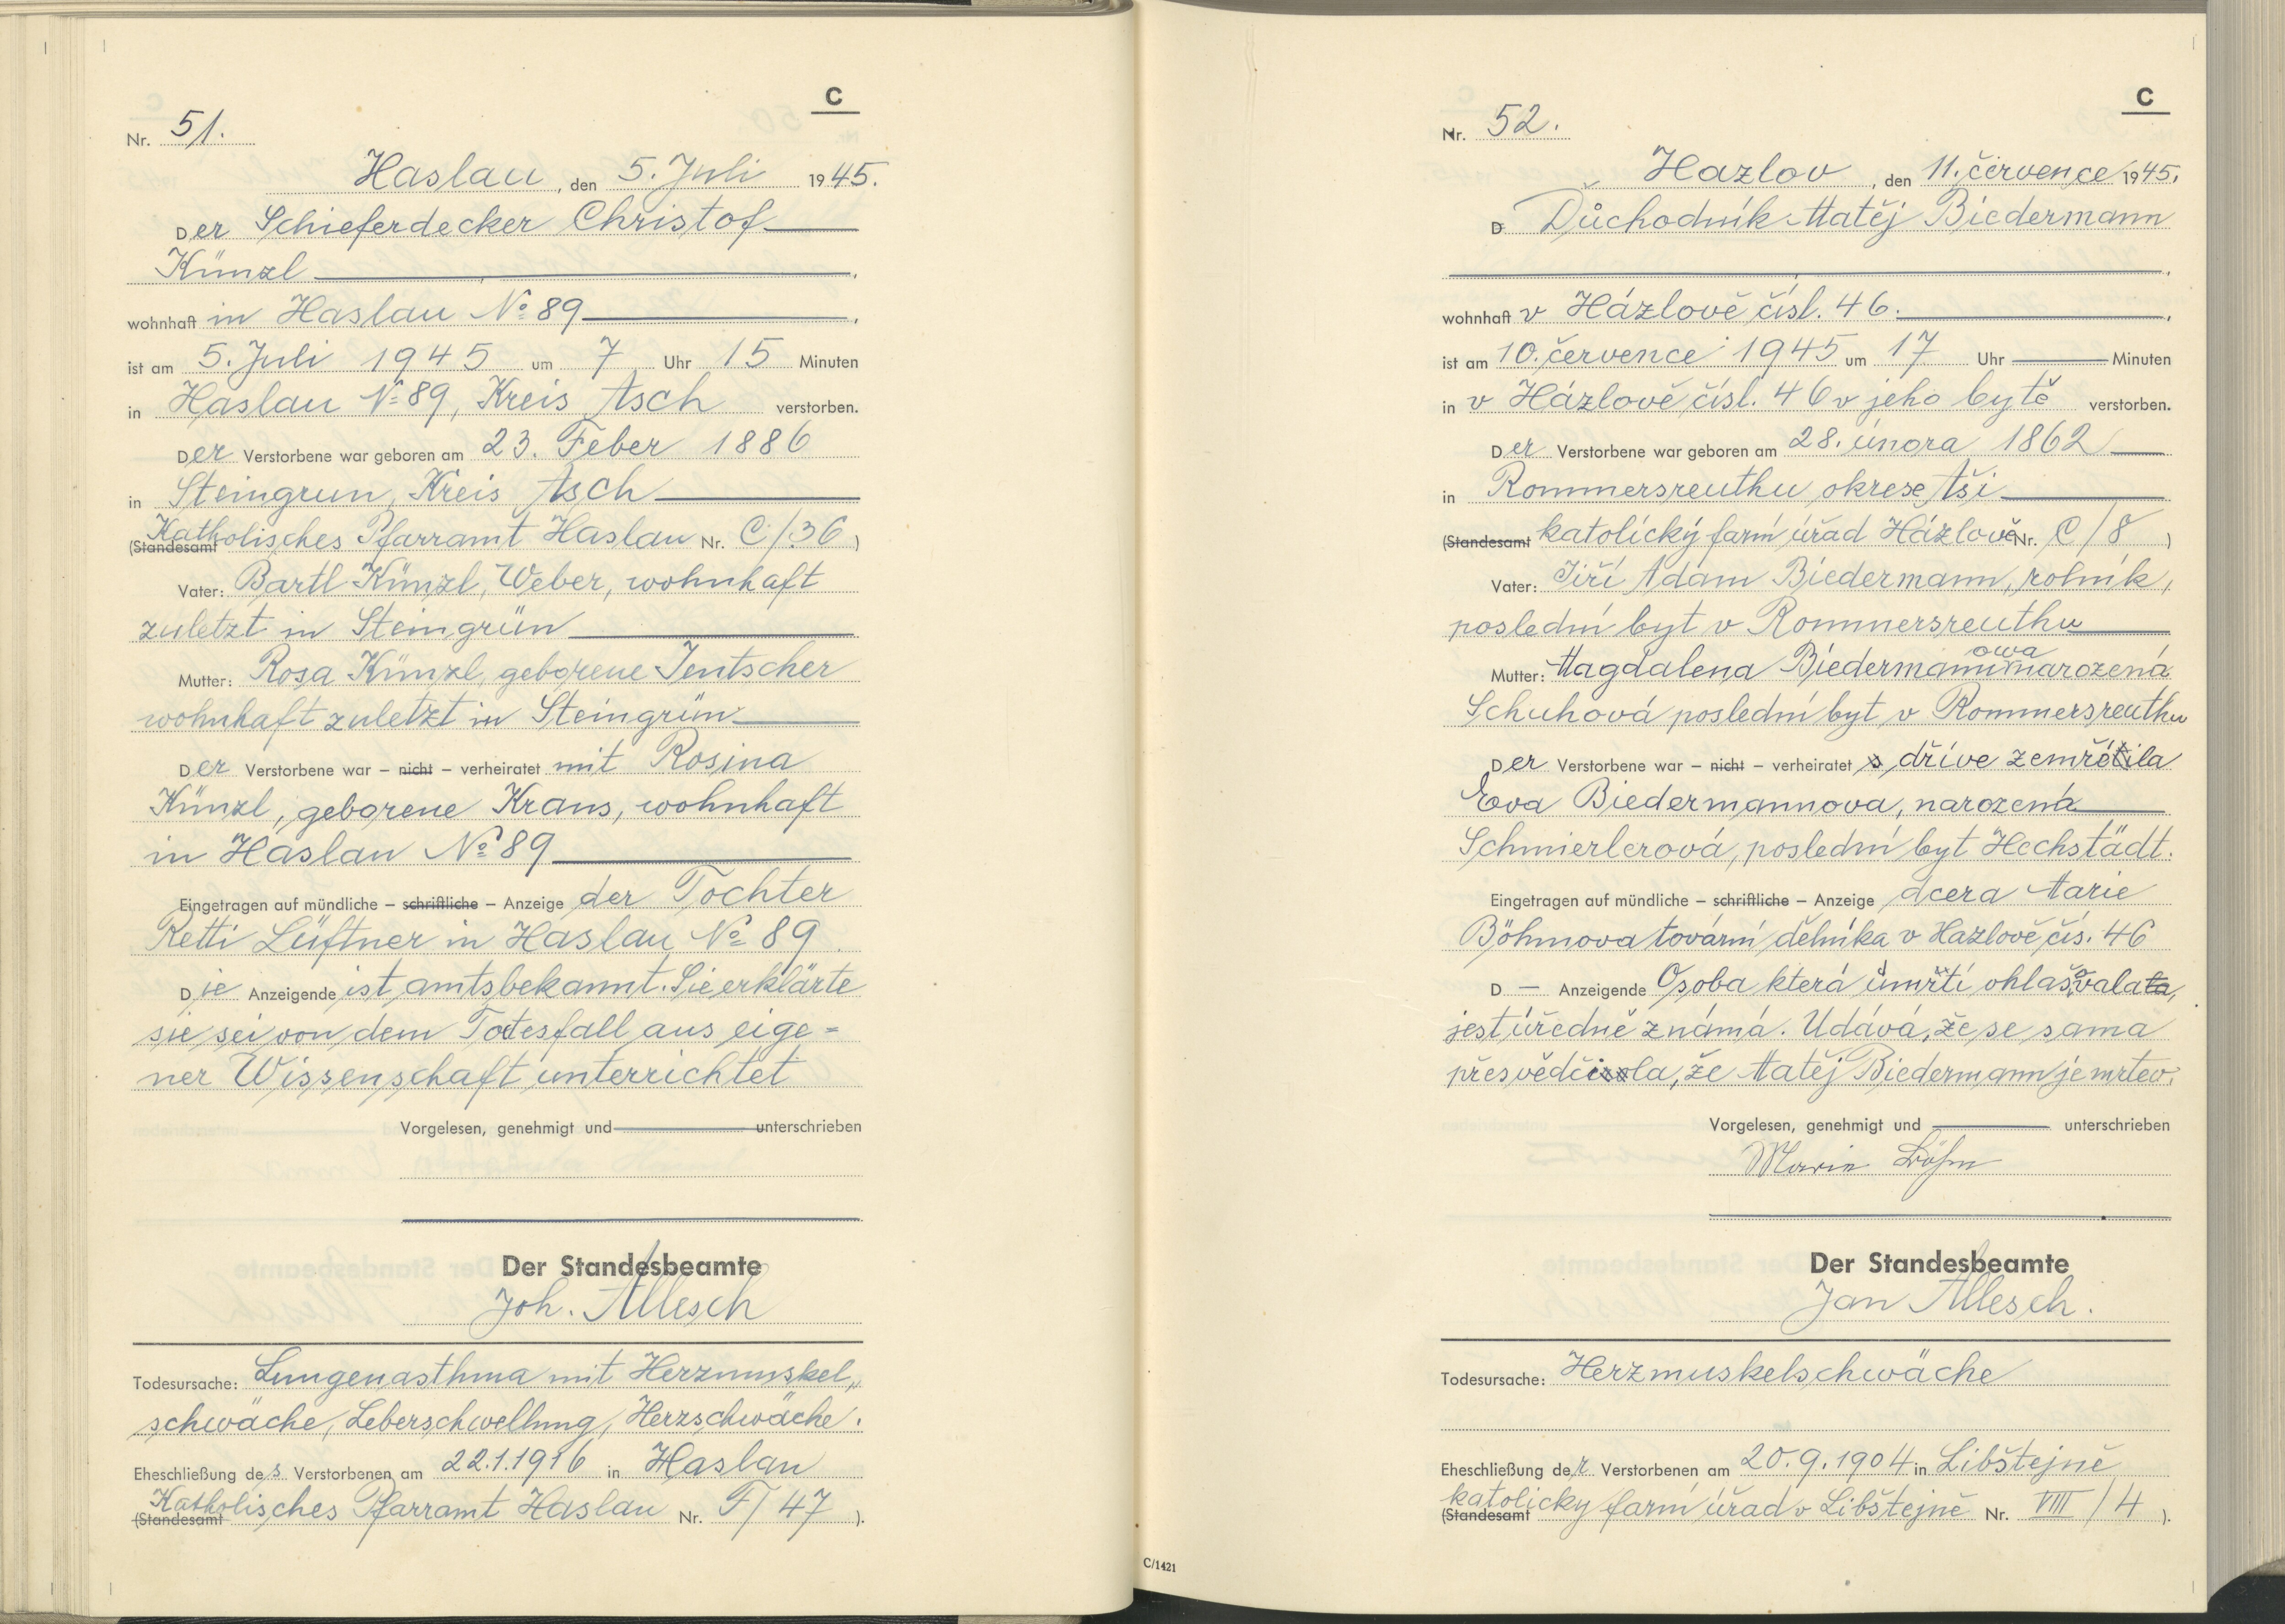 C
Nr. 51.
Haslau, den 5. Juli 1945.
Der Schieferdecker Christof
Künzl,
wohnhaft in Haslau No 89,
ist am 5. Juli 1945 um 7 Uhr 15 Minuten
in Haslau No 89, Kreis Asch verstorben.
Der Verstorbene war geboren am 23. Feber 1886
in Steingrun, Kreis Asch
(Standesamt Katholisches Pfarramt Haslau Nr. C/36)
Vater: Bartl Künzl, Weber, wohnhaft
zuletzt in Steingrün
Mutter: Rosa Künzl, geborene Jentscher
wohnhaft zuletzt in Steingrün
Der Verstorbene war – nicht – verheiratet mit Rosina
Künzl, geborene Kraus, wohnhaft
in Haslau No 89
Eingetragen auf mündliche – schriftliche – Anzeige der Tochter
Retti Lüftner in Haslau No 89.
Die Anzeigende ist amtsbekannt. Sie erklärte
sie sei von dem Todesfall aus eige=
ner Wissenschaft unterrichtet
Vorgelesen, genehmigt und unterschrieben
Der Standesbeamte
Joh. Allesch
Todesursache: Lungenasthma mit Herzmuskel„
schwäche, Leberschwellung, Herzschwäche.
Eheschließung des Verstorbenen am 22.1.1916 in Haslau
(Standesamt Katholisches Pfarramt Haslau Nr. F/47).
C
Nr. 52.
Hazlov, den 11. července 1945.
D Důchodník Matěj Biedermann
,
wohnhaft v Házlově čísl. 46.,
ist am 10. července 1945 um 17 Uhr Minuten
in v Házlově čísl. 46 v jeho bytě verstorben.
Der Verstorbene war geboren am 28. února 1862
in Rommersreuthu okrese Aši
(Standesamt katolický farní úřad Házlově Nr. C/8)
Vater: Jiří Adam Biedermann, rolník,
poslední byt v Rommersreuthu
Mutter: Magdalena Biedermannowa narozená
Schuhová poslední byt v Rommersreuthu
Der Verstorbene war – nicht – verheiratet s dříve zemřela
Eva Biedermannova, narozená
Schmierlerová, poslední byt Hochstädt.
Eingetragen auf mündliche – schriftliche – Anzeige dcera Marie
Böhmova tovární dělníka v Hazlově čís. 46
D – Anzeigende Osoba která úmrtí ohlašovala ta,
jest úředně známá. Udává, že se sama
přesvědčila, že Matěj Biedermann je mrtev.
Vorgelesen, genehmigt und unterschrieben
Marie Böhm
Der Standesbeamte
Jan Allesch.
Todesursache: Herzmuskelschwäche
Eheschließung der Verstorbenen am 20.9.1904 in Libštejně
(Standesamt katolicky farní úřad v Libštejně Nr. VIII/4).
C/1421